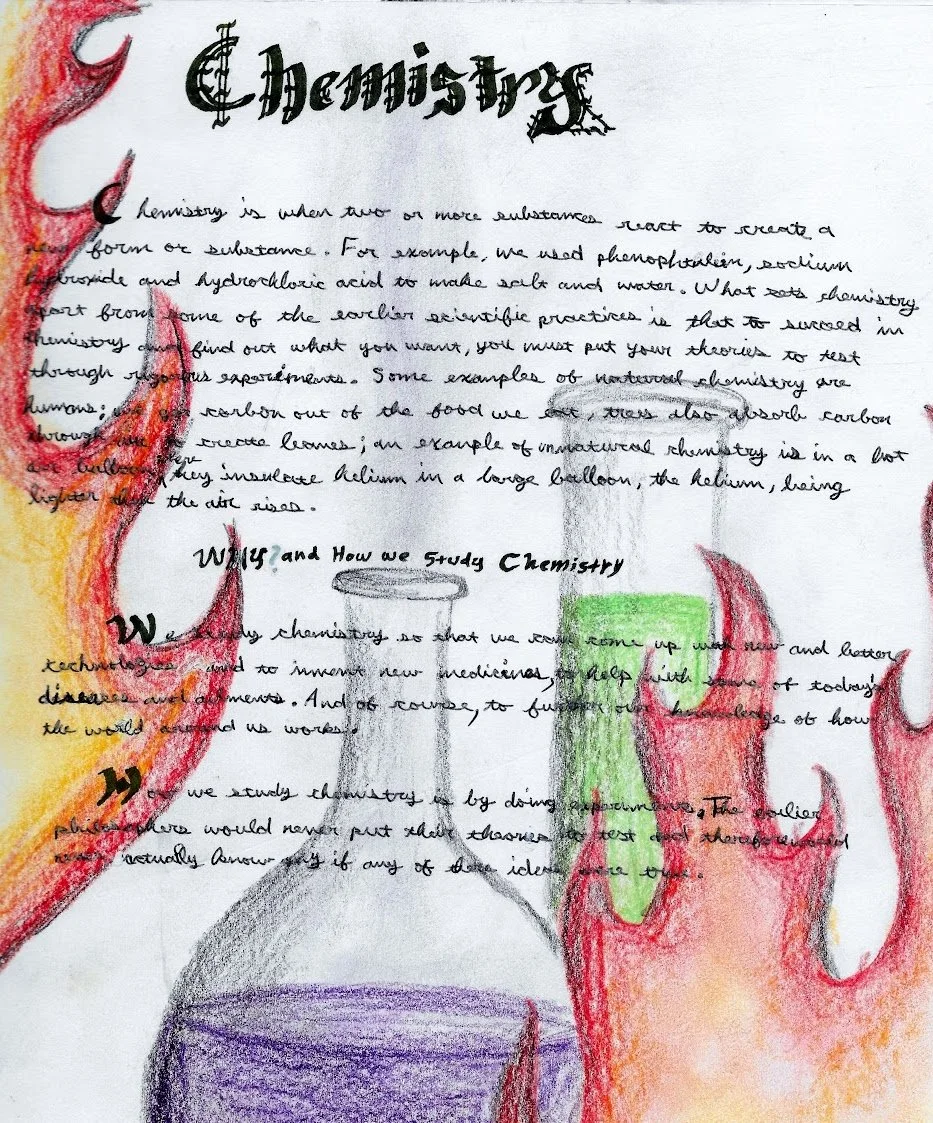 Chemistry
Chemistry is when two or more substances react to create a
new form or substance. For example, we used phenophtalein, sodium
hydroxide and hydrochloric acid to make salt and water. What sets chemistry
apart from some of the earlier scientific practices is that to succeed in
chemistry and find out what you want, you must put your theories to test
through rigorous experiments. Some examples of natural chemistry are
humans; we get carbon out of the food we eat, trees also absorb carbon
through air to create leaves; an example of unnatural chemistry is in a hot
air balloon, where they insulate helium in a large balloon, the helium, being
lighter than the air rises.
Why? and How we Study Chemistry
We study chemistry so that we can come up with new and better
technologies and to invent new medicines, to help with some of today's
diseases and ailments. And of course, to further our knowledge of how
the world around us works.
How we study chemistry is by doing experiments. The earlier
philosophers would never put their theories to test and therefore would
never actually know if any of their ideas were true.